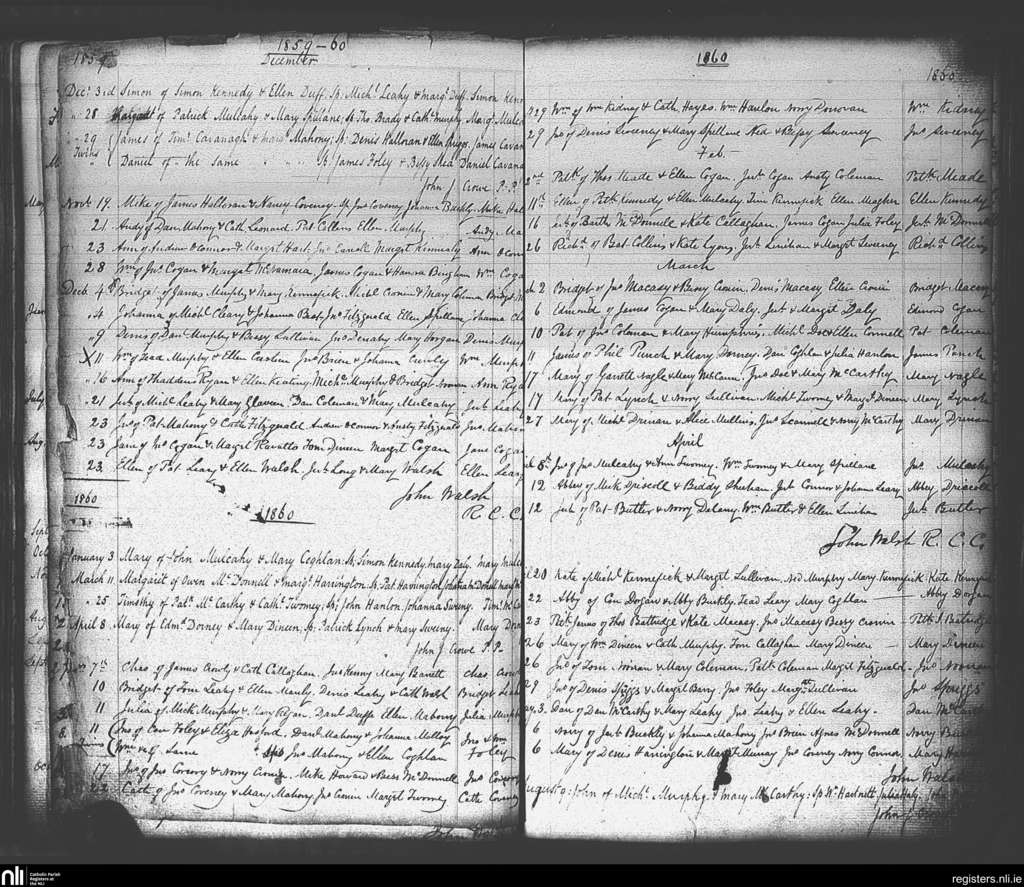 1859
1859-60
December
Decr 3rd Simon of Simon Kennedy & Ellen Duff. Sp. Michl Leahy & Margt Duff. Simon
" 28 Margaret of Patrick Mullahy & Mary Spillane; Sp. Thos Brady & Cath. Murphy Margt
" 29 James of Timy Cavanagh & Mahony; Sp. Denis Halloran & Ellen Spriggs. James Cavan
Twins Daniel of the Same " " " Sp. James Foley & Bessy Shea Daniel Cavana
John J Crowe P.P.
Novr 17. Mike of James Halloran & Nancy Coveney. Sp. Jno Coveney Johanna Buckly. Mike Hal
21 Andy of Dan Mahony & Cath Leonard. Pat Collins Ellen Murphy Andy Ma
23 Ann of Andrew OConnor & Margt Hart. Jno Margt Ann OConn
28 Wm of Jno Cogan & Margt McNamara. James Cogan & Hanora Bingham Wm Coga
Decb 4th Bridget of James Murphy & Mary Kennefick. Michl Cronin & Mary Coleman Bridget M
" 4 Johanna of Michl Cleary & Johanna Jno Fitzgerald Ellen Spillane Johanna Cle
" 9 Denis of Dan Murphy & Bessy Sullivan Jno Mary Horgan Denis Mur
X 11 Wm of Murphy & Ellen Jno Brien & Johanna Wm Murp
" 16 Ann of Thaddeus Ryan & Ellen Keating Michl Murphy & Bridget Noonan Ann Rya
" 21 Jerh of Michl Leahy & Mary Dan Coleman & Mary Mulcahy Jerh Leahy
23 Jno of Pat Mahony & Cath Fitzgerald Andrew OConnor & Fitzgerald Jno Mahon
23 Jane of Jno Cogan & Margt Tom Dineen Margt Cogan Jane Cogan
23. Ellen of Pat Leary & Ellen Walsh. Jerh Long & Mary Walsh Ellen Lear
John Walsh
R. C. C.
1860
1860
January 3 Mary of John Mulcahy & Mary Coghlan. Sp. Simon Kennedy, Mary Daly. Mary
March 11. Margaret of Owen McDonnell & Margt Harrington. Sp. Pat Harrington,
" 25 Timothy of Patk McCarthy & Cathe Twomey. Sp. John Hanlon, Johanna Sweeny. Timy McCa
April 8 Mary of Edmd Dorney & Mary Dineen. Sp. Patrick Lynch & Mary Sweeny. Mary
John J Crowe P.P.
7th Chas of James Crowly & Cath Callaghan. Jas Kenny Mary Barrett Chas Crow
10 Bridget of Tom Leahy & Ellen Manly. Denis Leahy & Cath Walsh Bridget Leah
11 Julia of Mick Murphy & Mary Ryan. Danl Duffe Ellen Mahony Julia Murph
11 Jno of Con Foley & Eliza Danl Mahony & Johanna Molloy Jno & Wm
Twins Wm of Same Jno Mahony & Ellen Coghlan Foley
17 Jno of Jno Coveny & Nony Cronin. Mike Howard & Bess McDonnell Jno Coveny
22 Cath of Jno Coveney & Mary Mahony Jno Cronin Margt Twomey Cath Coveney
1860
1860
29 Wm of Wm Kidney & Cath Hayes. Wm Hanlon Nony Donovan Wm Kidney
29 Jno of Denis Sweeney & Mary Spillane Ned & Bessy Sweeney Jno Sweeney
Feb.
2nd Patk of Thos Meade & Ellen Cogan. Jerh Cogan Coleman Patk Meade
11th Ellen of Patk Kennedy & Ellen Mulcahy Tim Kennefick Ellen Meagher Ellen Kennedy
16 Jerh of Barth McDonnell & Kate Callaghan. James Cogan Julia Foley Jerh McDonnell
26 Richd of Bat Collins & Kate Lyons. Jerh Linehan & Margt Sweeney Richd Collins
March
2 Bridget of Jno Macasy & Bessy Cronin. Denis Macasy Ellen Cronin Bridget Macasy
6 Edmund of James Egan & Mary Daly. Jerh & Margt Daly Edmond Egan
10 Pat of Jno Coleman & Mary Humphries. Michl Doe & Ellen Connell Pat Coleman
11 James of Phil Punch & Mary Dorney. Dan Coghlan & Julia Hanlon James Punch
17 Mary of Garrett Nagle & Mary McCann. Jno Doe & Mary McCarthy Mary Nagle
17 Mary of Pat Lynch & Nony Sullivan. Michl Twomy & Margt Dineen Mary Lynch
27 Mary of Michl Drinan & Alice Mullins. Jno Scannell & Nony McCarthy Mary Drinan
April
8th Jno of Jno Mulcahy & Ann Twomey. Wm Twomey & Mary Spillane Jno. Mulcahy
12 Abbey of Mick Driscoll & Biddy Sheehan. Jerh Connor & Johana Leary Abbey Driscoll
12 Jerh of Pat Butler & Nony Delany. Wm Butler & Ellen Linehan Jerh Butler
John Walsh R. C. C.
20 Kate of Michl Kennefick & Margt Sullivan. Ned Murphy Mary Kennefick Kate Kennef
22 Abby of Con Dogan & Abby Buckly. Tead Leary Mary Coghlan Abby Dogan
23 Patk James of Thos Battridge & Kate Macasy. Jno Macasy Bessy Cronin Patk J Battridge
26 Mary of Wm Dineen & Cath Murphy. Tom Callaghan Mary Dineen Mary Dineen
26 Jno of Tom Noonan & Mary Coleman. Patk Coleman Margt Fitzgerald Jno Noonan
29 Jno of Denis Spriggs & Margt Barry. Jno Foley Margt Sullivan Jno Spriggs
3. Dan of Dan McCarthy & Mary Leahy. Jno Leahy & Ellen Leahy. Dan McCar
6 Nony of Jerh Buckly & Johanna Mahony Jno Brien Agnes McDonnell Nony Buck
6 Mary of Denis Harrington & Margt Murray Jno Coveny Nony Connor. Mary Ha
John Walsh
August 9: John of Michl Murphy & Mary McCarthy: Sp Wm Hartnett Julia Daly. John
John J
nli
Catholic Parish
Registers at
the NLI
registers.nli.ie